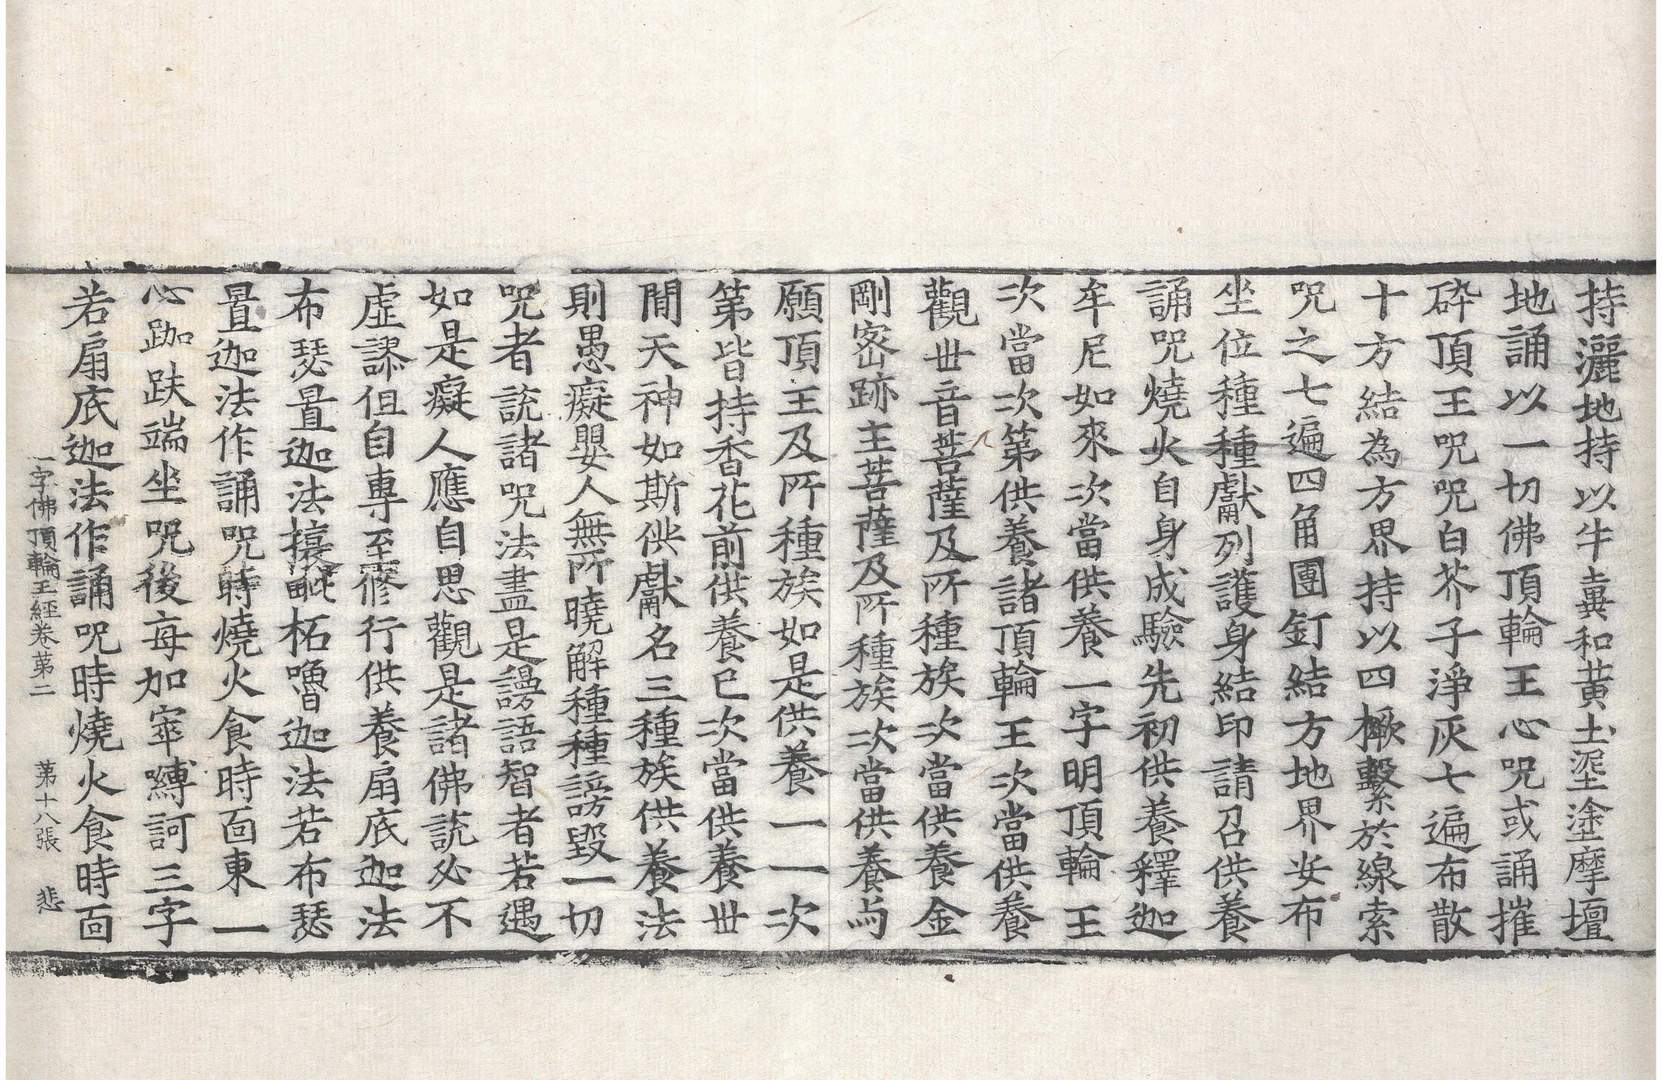 持灑地持以牛糞和黃土埿塗摩壇
地誦以一切佛頂輪王心呪或誦摧
碎頂王呪呪白芥子淨灰七遍布散
十方結為方界持以四橛繫於線索
呪之七遍四角團釘結方地界安布
坐位種種獻列護身結印請召供養
誦呪燒火自身成驗先初供養釋迦
牟尼如來次當供養一字明頂輪王
次當次第供養諸頂輪王次當供養
觀世音菩薩及所種族次當供養金
剛密跡主菩薩及所種族次當供養与
願頂王及所種族如是供養一一次
第皆持香花前供養已次當供養世
間天神如斯供獻名三種族供養法
則愚癡嬰人無所曉解種種謗毀一切
呪者說諸呪法盡是謾語智者若遇
如是癡人應自思觀是諸佛說必不
虛謬但自專至修行供養扇底迦法
布瑟置迦法柘嚕迦法若布瑟
置迦法作誦呪時燒火食時面東一
心跏趺端坐呪後每加窣嚩訶三字
若扇底迦法作誦呪時燒火食時面
一字佛頂輪王經卷第二 第十八張 悲